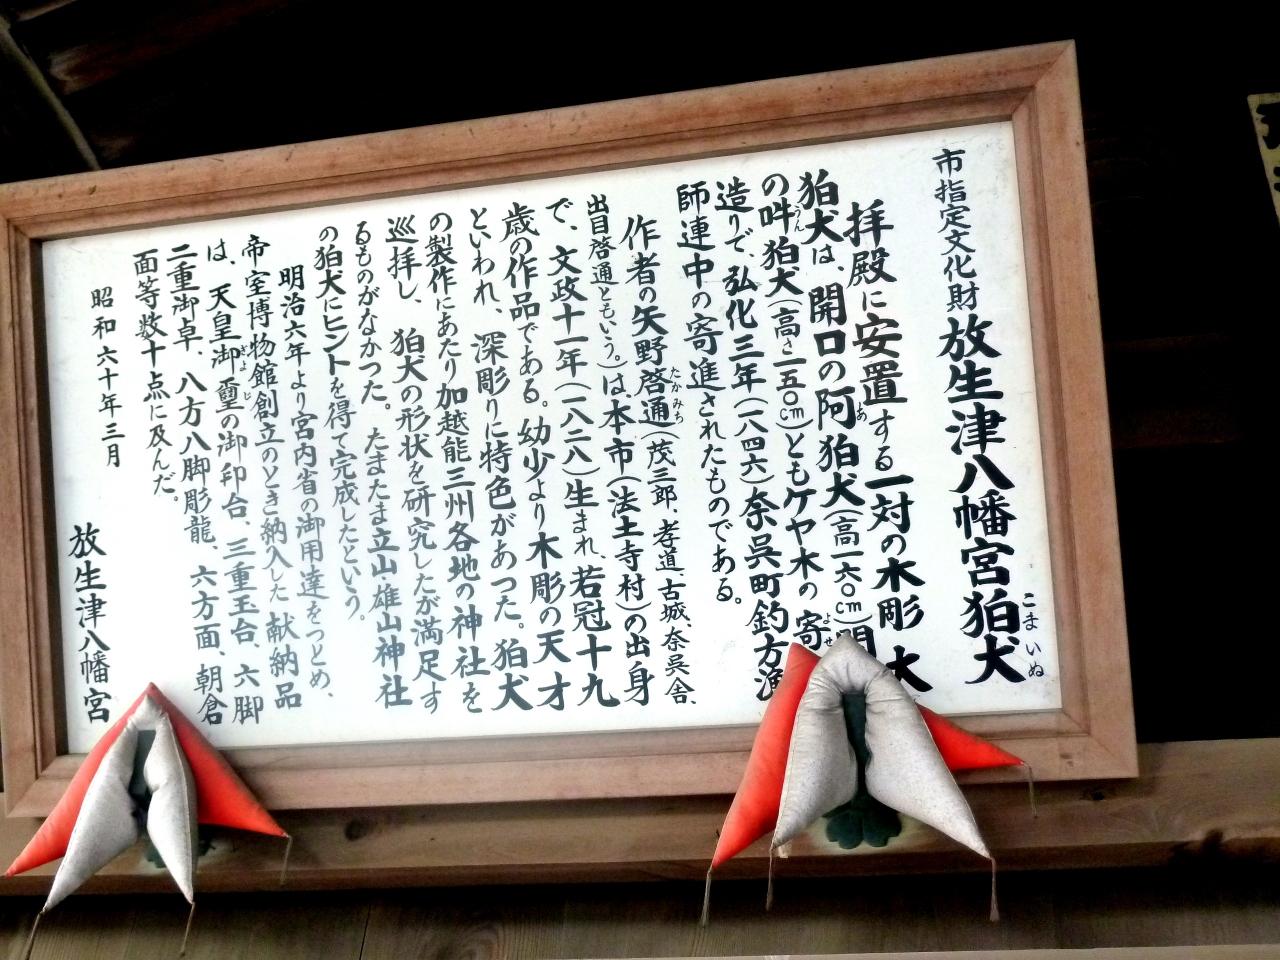 市指定文化財 放生津八幡宮狛犬
こまいぬ
拝殿に安置する一対の木彫大
狛犬は、開口の阿狛犬(高一六〇cm)閉
あ
の吽狛犬(高さ一五〇cm)ともケヤ木の寄
うん
よせ
造りで、弘化三年(一八四六)奈呉町釣方漁
師連中の寄進されたものである。
作者の矢野啓通(茂三郎、孝道、古城、奈呉舎、
たかみち
出目啓通ともいう。)は、本市(法土寺村)の出身
で、文政十一年(一八二八)生まれ、若冠十九
歳の作品である。幼少より木彫の天才
といわれ、深彫りに特色があつた。狛犬
の製作にあたり加越能三州各地の神社を
巡拝し、狛犬の形状を研究したが満足す
るものがなかつた。たまたま立山・雄山神社
の狛犬にヒントを得て完成したという。
明治六年より宮内省の御用達をつとめ、
帝室博物館創立のとき納入した献納品
は、天皇御璽の御印台、三重玉台、六脚
ぎょじ
二重御卓、八方八脚彫龍、六方面、朝倉
面等数十点に及んだ。
昭和六十年三月
放生津八幡宮